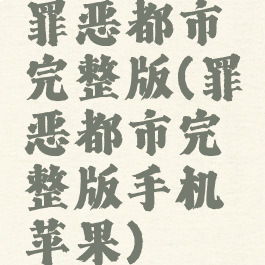 罪恶都市
完整版(罪
恶都市完
整版手机
苹果)